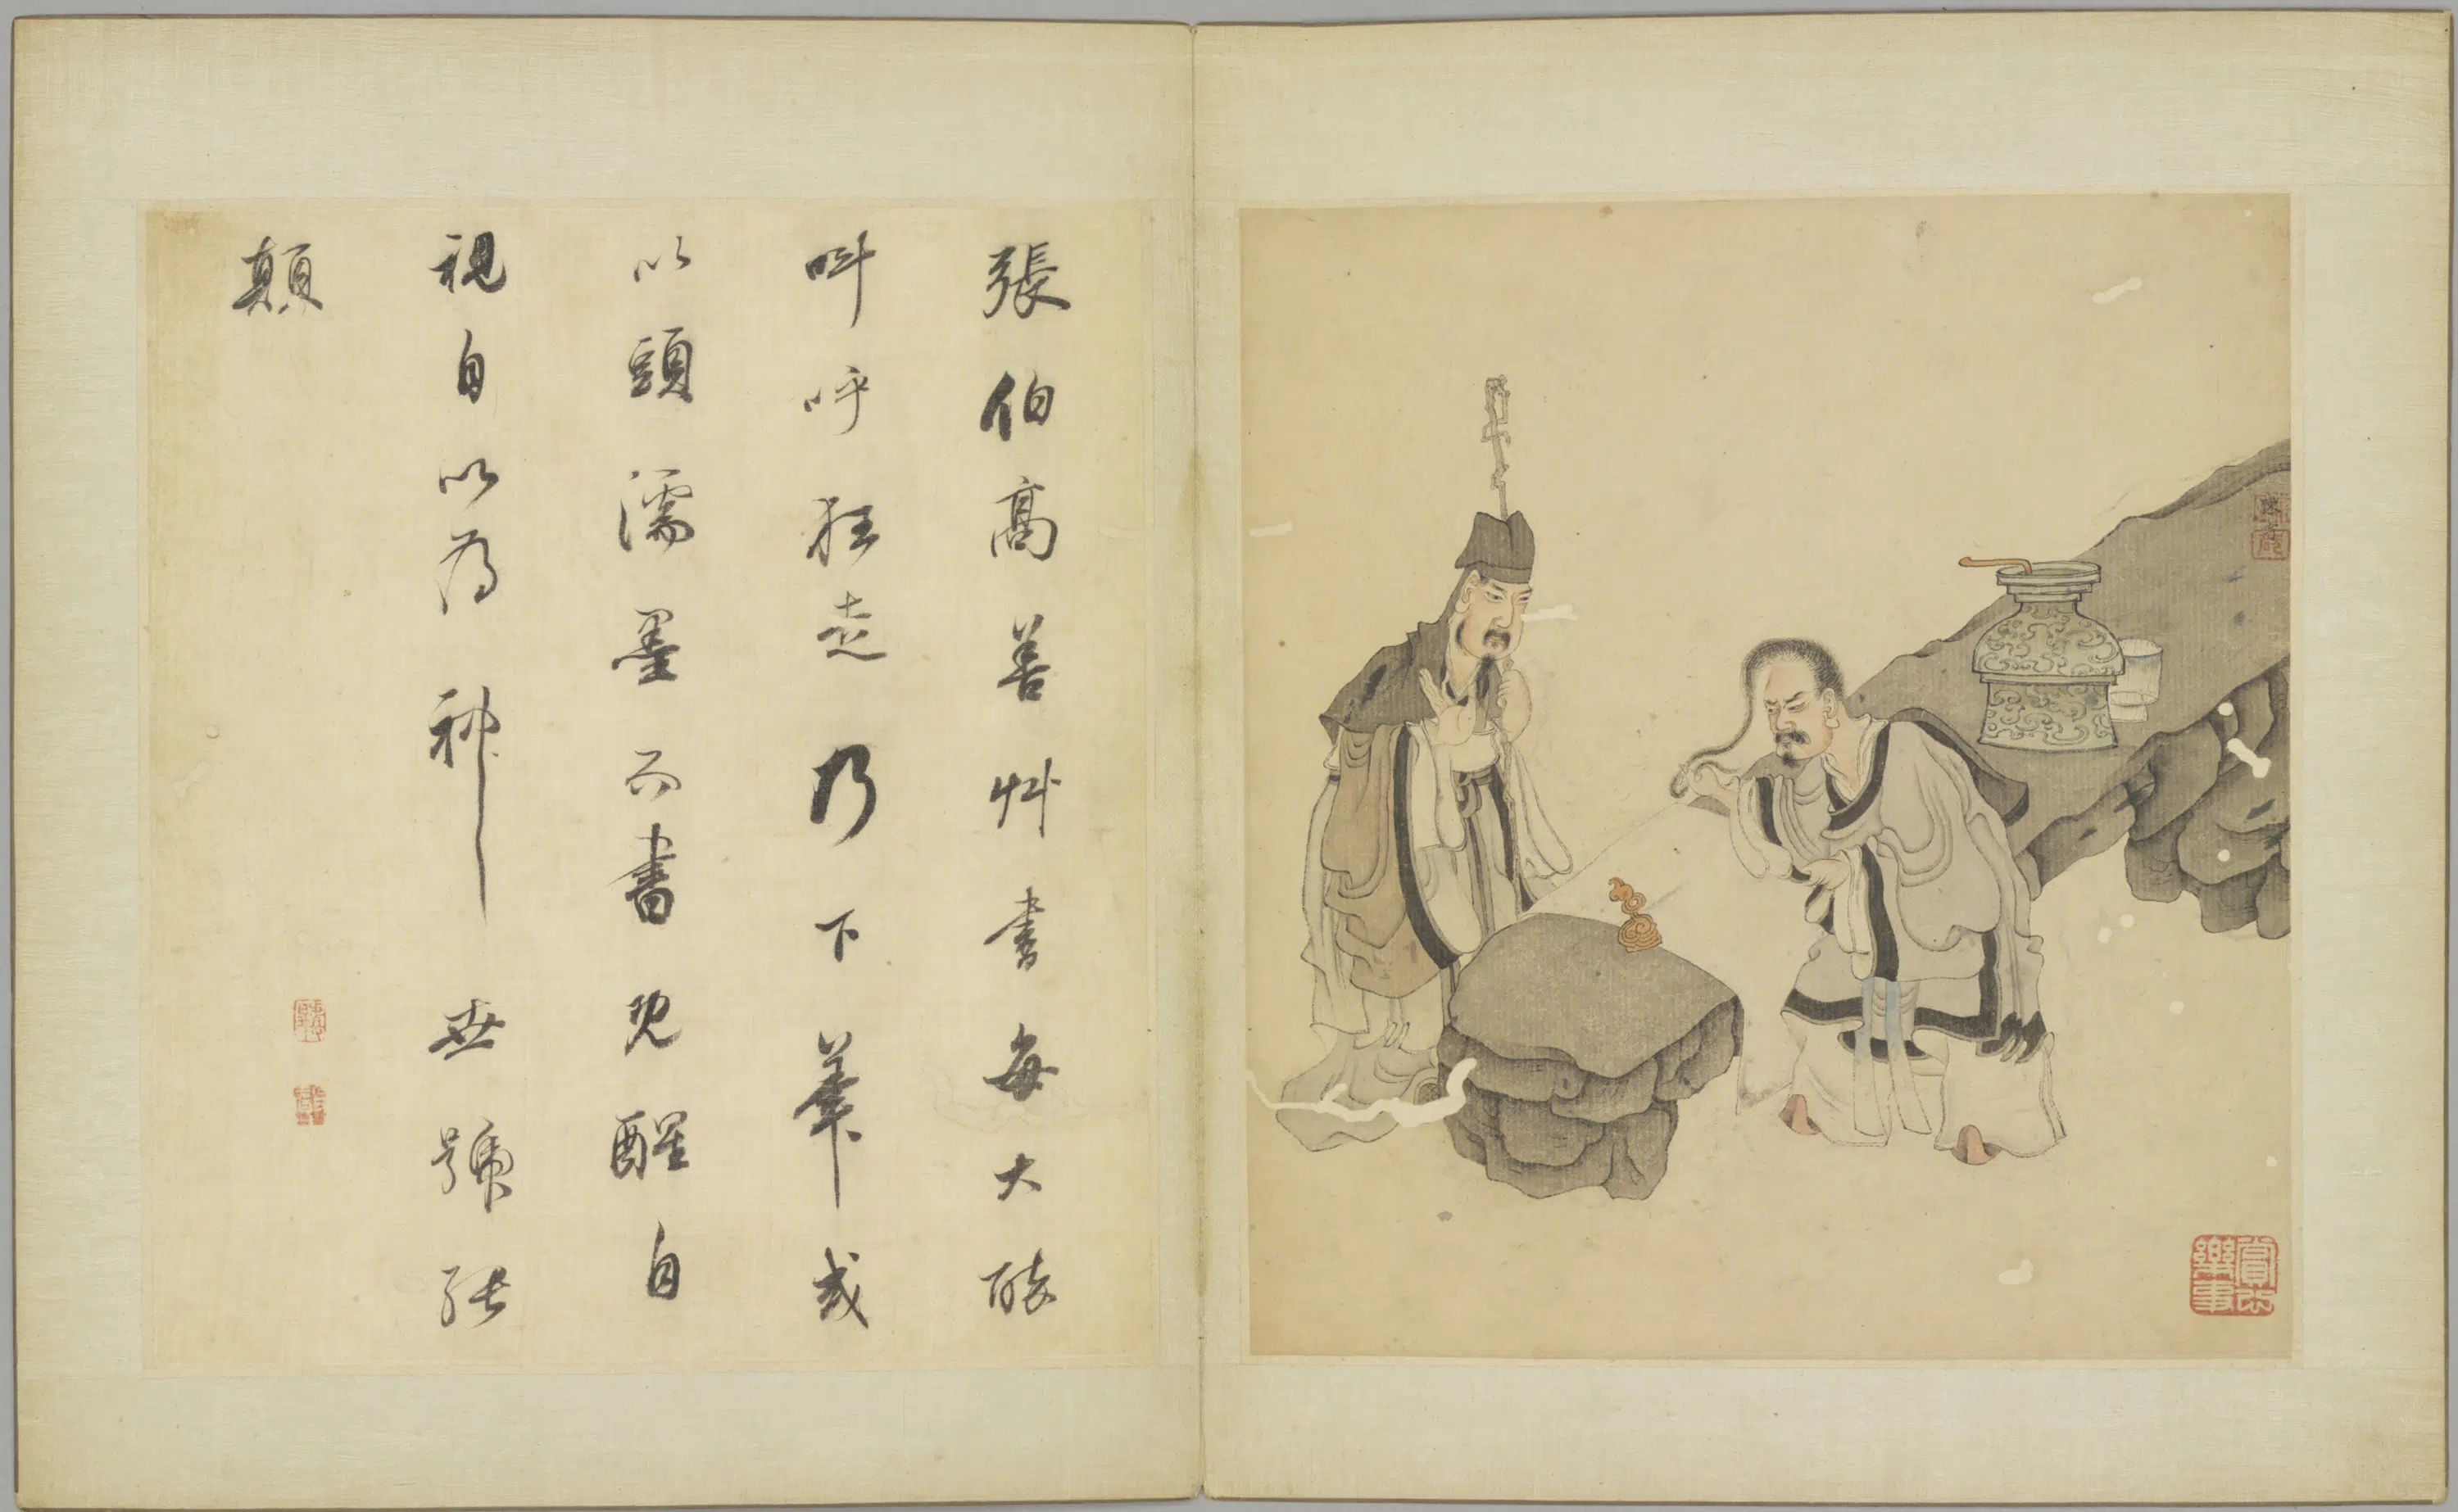 張伯高善艸書每大醉
叫呼狂走乃下筆或
以頭濡墨而書既醒自
視自以為神世號張
顛